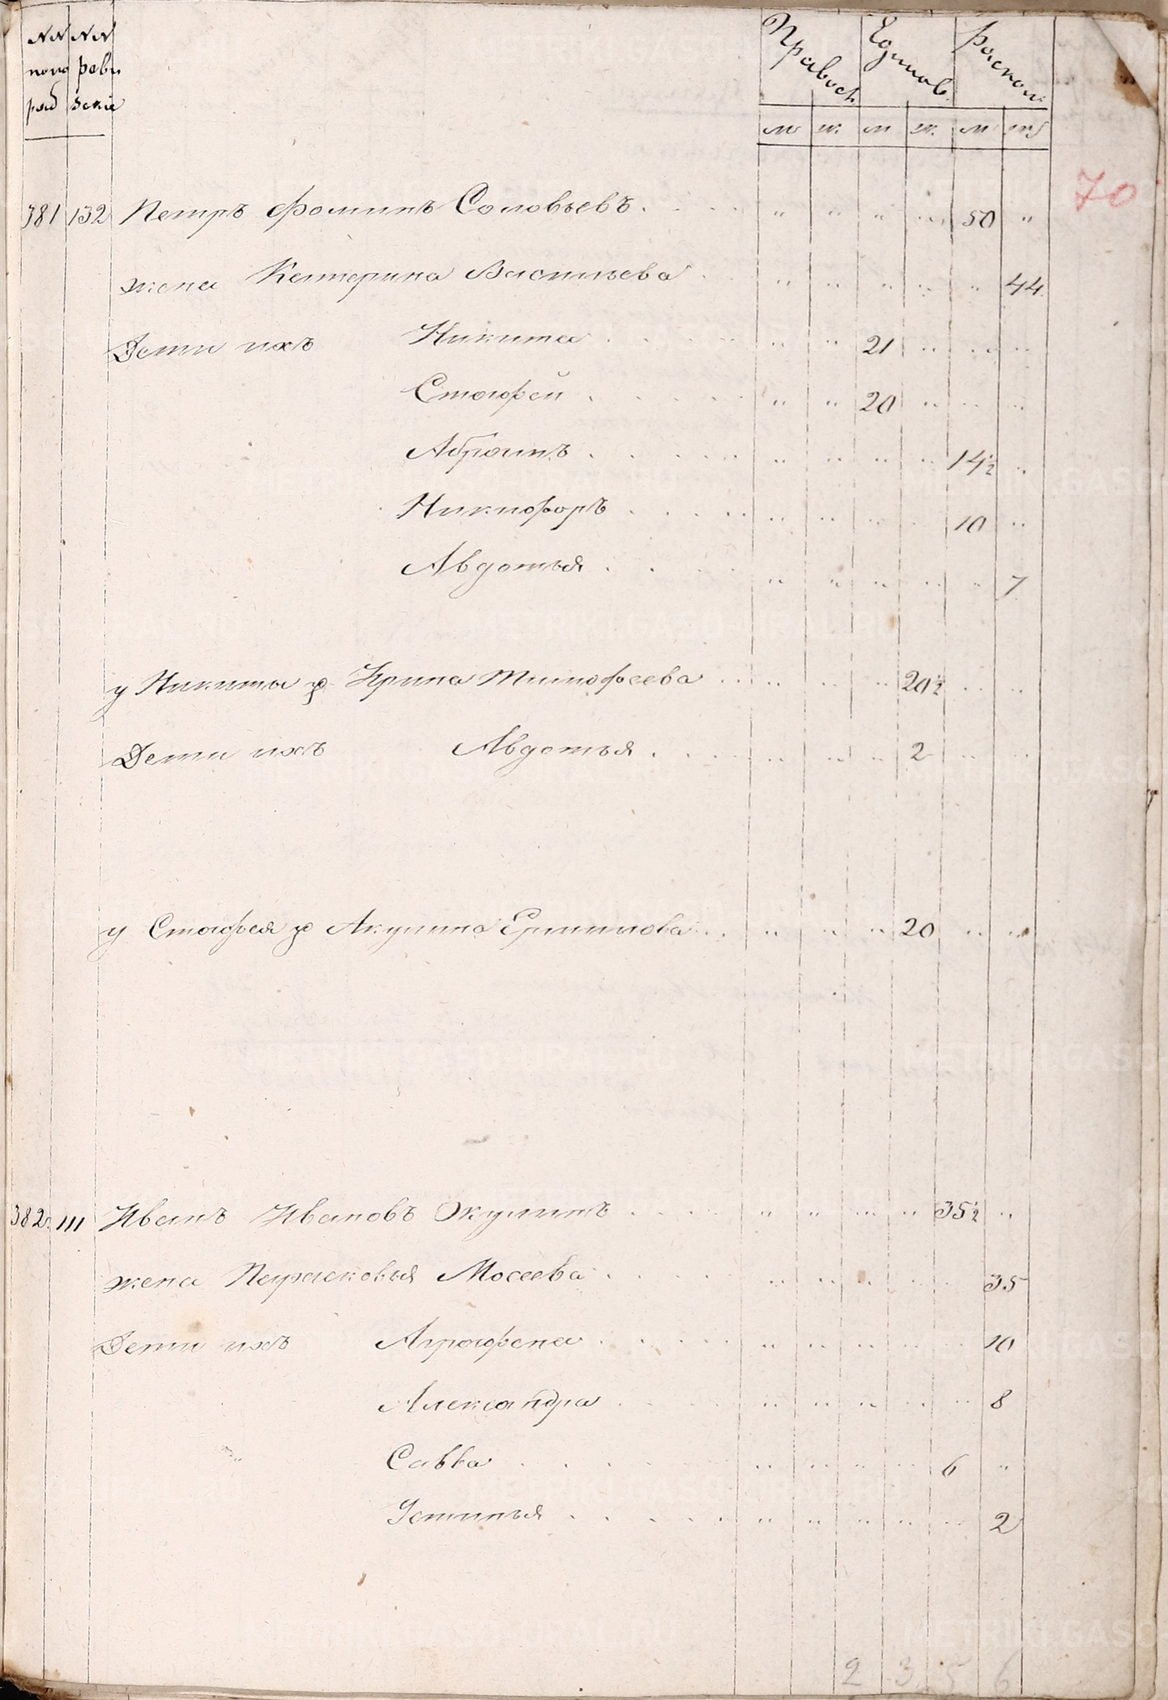 №№ №№
попо реви
ряд зскіе
Правосл. Единов. Раскол.
м ж. м ж. м ж
70
381 132 Петръ Фоминъ Соловьевъ. . . . " " " " 50 "
жена Катерина Васильева . " " " " " 44
Дети ихъ Никита . . . . . " " 21 " " "
Стафей . . . . . " " 20 " " "
Абрамъ . . . . . " " " " 14½ "
Никифоръ . . . . " " " " 10 "
Авдотья . . . . " " " " " 7
у Никиты ж Ирина Тимофеева . . . " " " 20½ " "
Дети ихъ Авдотья . . . . " " " 2 " "
у Стафея ж Акулина Ермилова . . " " " 20 " "
382 111 Иванъ Ивановъ Жулинъ . . . . " " " " 35½ "
жена Парасковья Мосеева . . . . " " " " " 35
Дети ихъ Аграфена . . . . " " " " " 10
Александра . . . . " " " " " 8
Савва . . . . . " " " " 6 "
Устинья . . . . . " " " " " 2
2 3 5 6